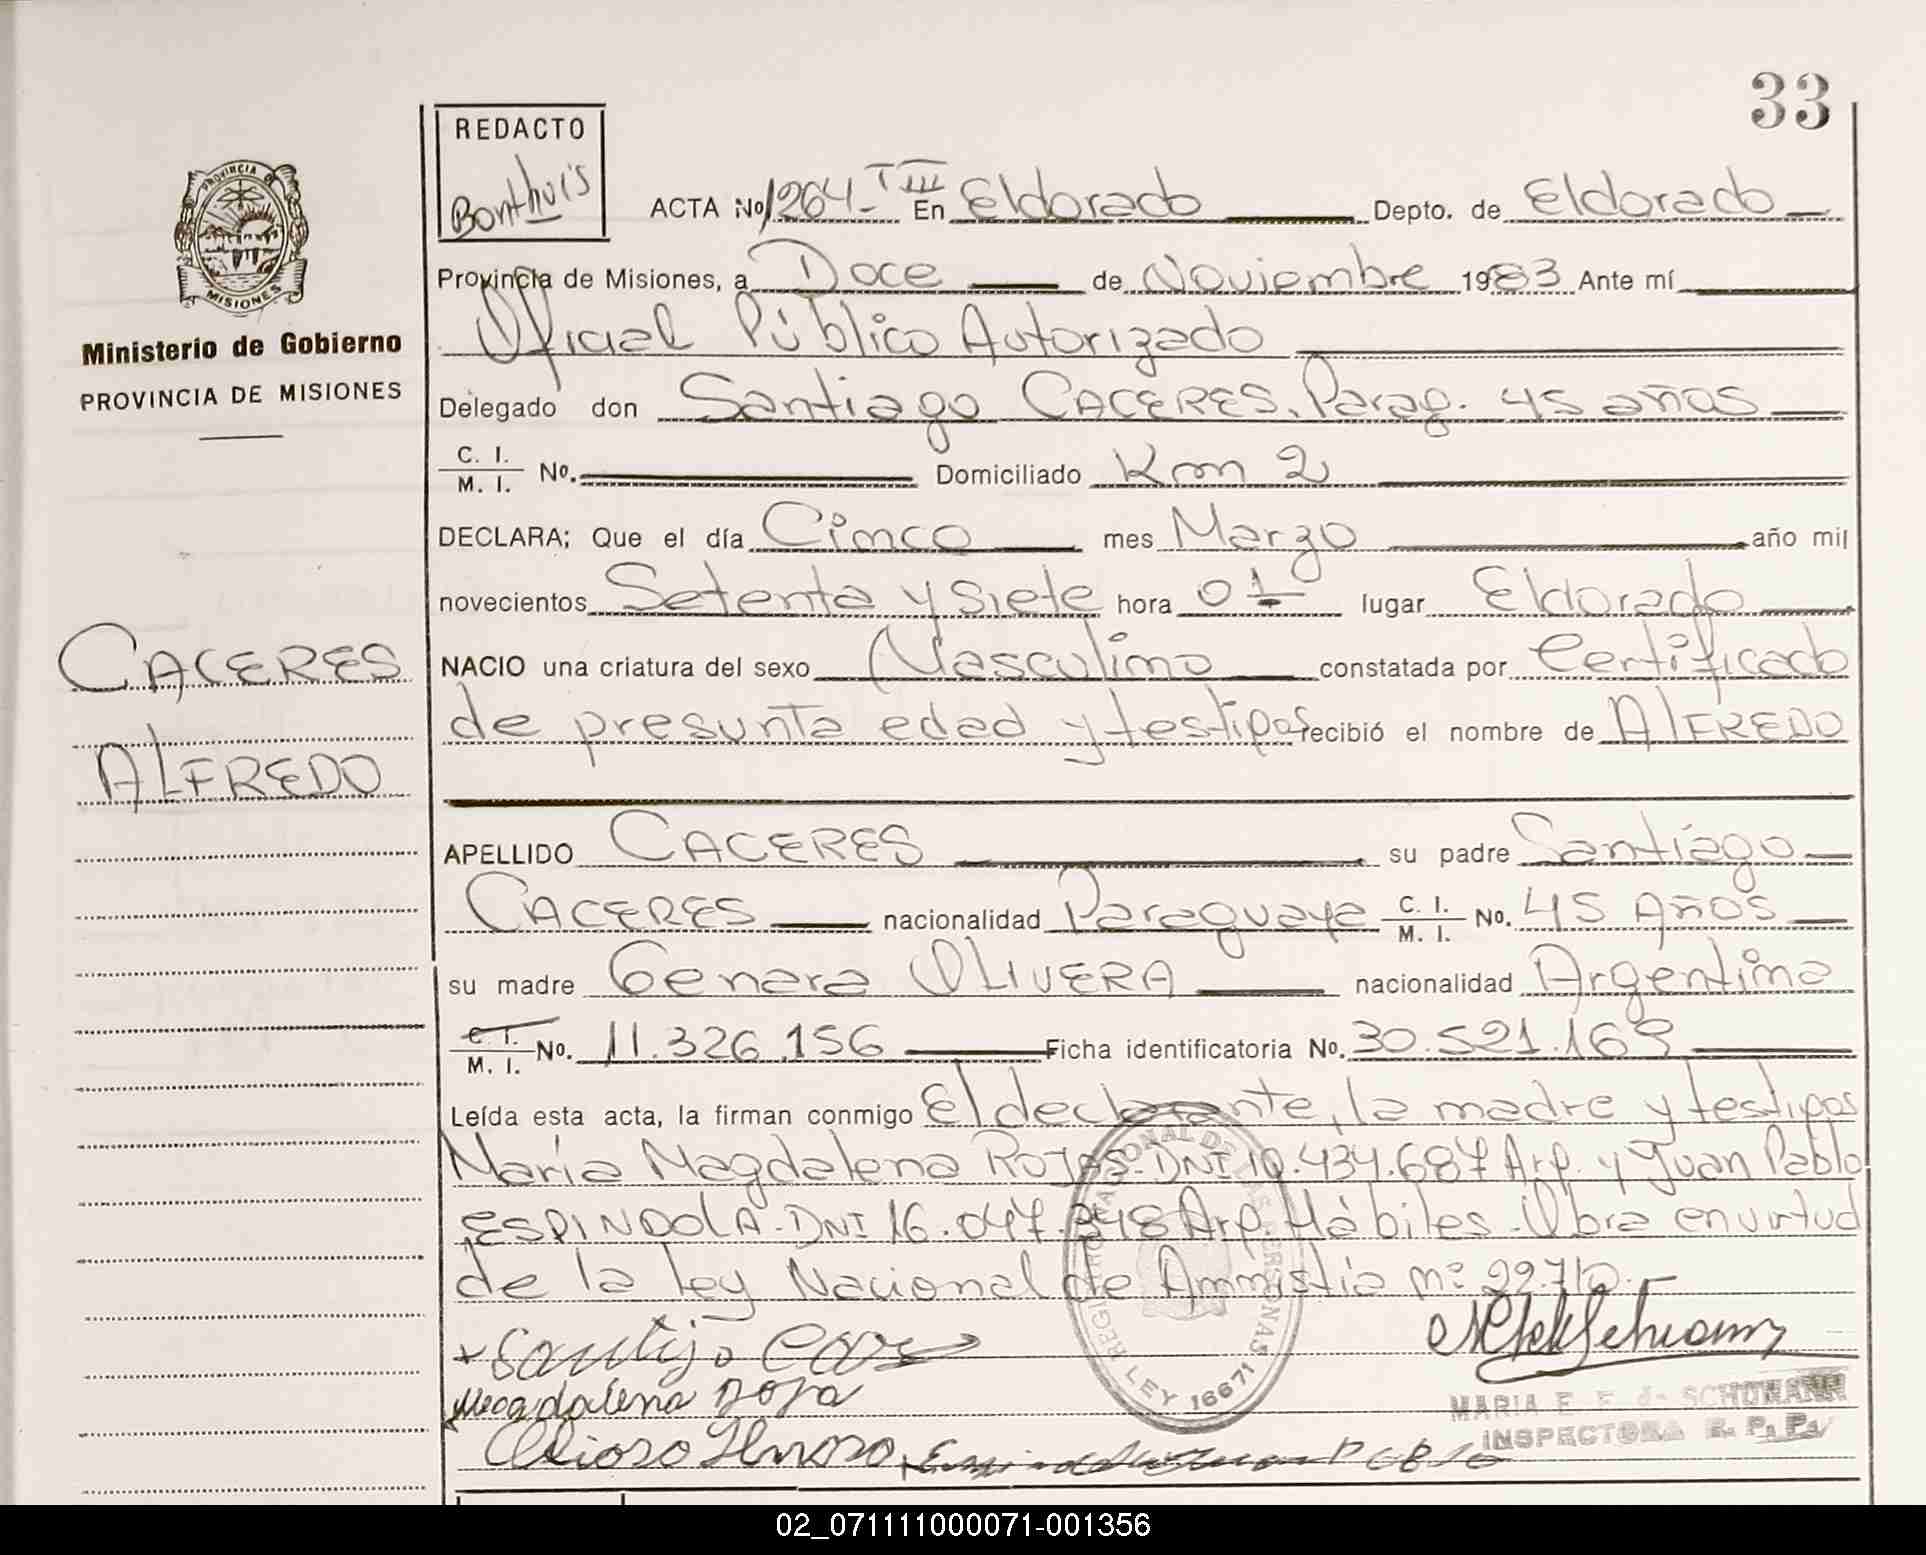 33
REDACTO
Bonthuis
ACTA No 1264- T III En Eldorado Depto. de Eldorado
PROVINCIA DE
MISIONES
Provincia de Misiones, a Doce de Noviembre 1983 Ante mí
Oficial Público Autorizado
Ministerio de Gobierno
PROVINCIA DE MISIONES
Delegado don Santiago CACERES, Parag. 45 años
C. I.
M. I. No. Domiciliado Km 2
DECLARA; Que el día Cinco mes Marzo año mil
novecientos Setenta y Siete hora 01 lugar Eldorado
CACERES
NACIO una criatura del sexo Masculino constatada por Certificado
de presunta edad y testigos recibió el nombre de ALFREDO
ALFREDO
APELLIDO CACERES su padre Santiago
CACERES nacionalidad Paraguaya C. I. M. I. No. 45 AÑOS
su madre Genara OLIVERA nacionalidad Argentina
C. I.
M. I. No. 11.326.156 Ficha identificatoria No. 30.521.169
Leída esta acta, la firman conmigo El declarante, la madre y testigos
María Magdalena ROJAS-DNI 10.434.687 Arg. y Juan Pablo
ESPINDOLA-DNI 16.047.348 Arg. Hábiles-Obra en virtud
de la Ley Nacional de Ammistia nº 22.710.-
REGISTRO NACIONAL DE LAS PERSONAS
LEY 16671
Magdalena Roja
MARIA E. F. de SCHUMANN
INSPECTORA R. P. P.
02_071111000071-001356